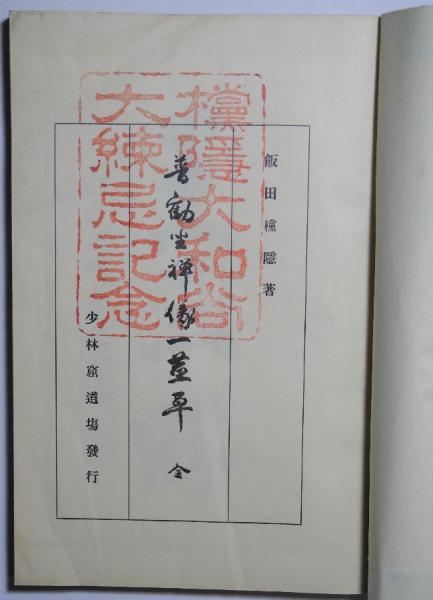 飯田欓隱著
普勸坐禪儀一莖草 全
少林窟道場發行
欓隱大和尚
大練忌記念